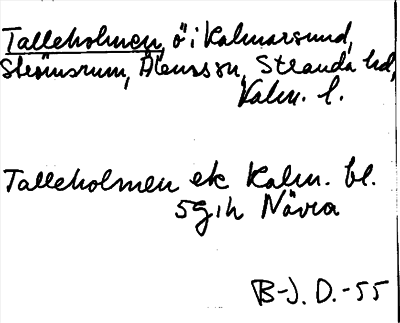 Talleholmen, ö i Kalmarsund,
Strömsrum, Ålems sn, Stranda hd,
Kalm. l.
Talleholmen ek Kalm. bl.
5g ih Növra
B-J. D. -55